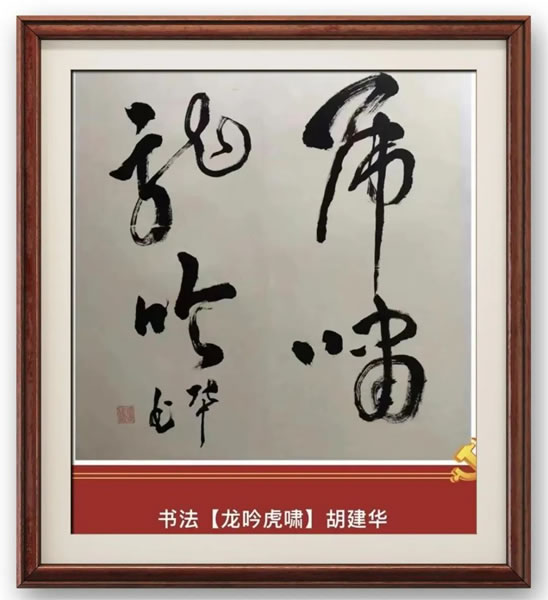 虎啸
龍吟
华书
书法【龙吟虎啸】胡建华